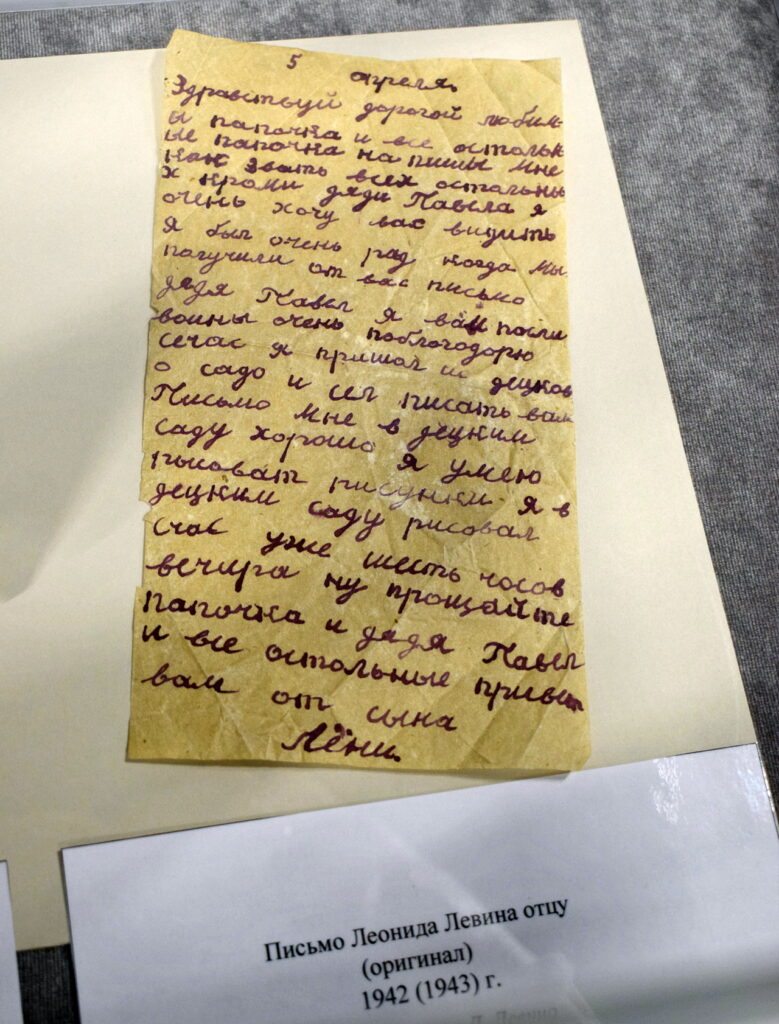 5 апреля.
Здравствуй дорогой любим
ы папочка и все остольн
ые папочка на пишы мне
как звать всех остольны
х кроми дяди Павела я
очень хочу вас видить
я был очень рад когда мы
получили от вас письмо
дядя Павел я вам посли
воины очень поблогодорю
сечас я пришол из децков
о садо и сел писать вам
Письмо мне в децким
саду хорошо я умею
рысоват рисунки я в
децким саду рисовал
счас уже шесть чосов
вечира ну прощайте
папочка и дядя Павел
и все остольные привет
вам от сына
Лёни.
Письмо Леонида Левина отцу
(оригинал)
1942 (1943) г.